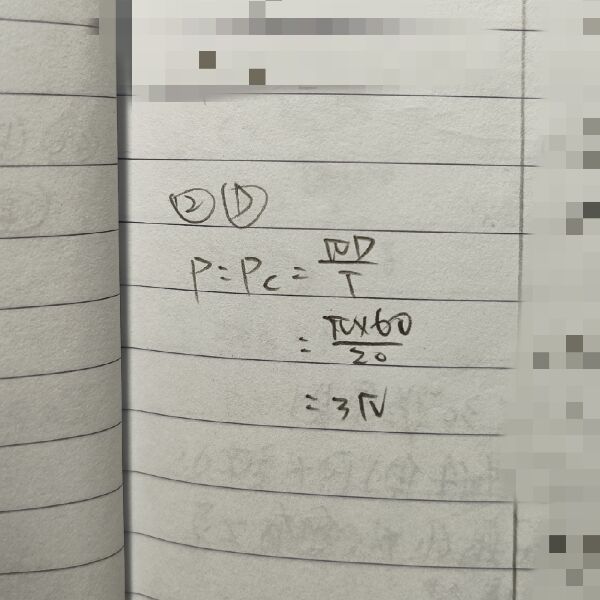 ② Ⓓ
P = Pc = πD/T
= π×60/20
= 3π